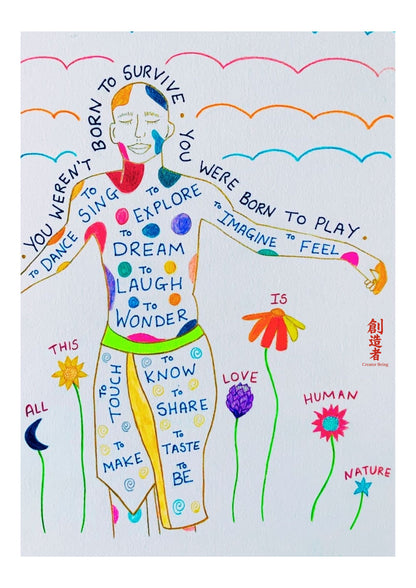 YOU WEREN'T BORN TO SURVIVE · YOU WERE BORN TO PLAY ·
TO DANCE
TO SING
TO EXPLORE
TO IMAGINE
TO FEEL
TO DREAM
TO LAUGH
TO WONDER
TO TOUCH
TO KNOW
TO SHARE
TO MAKE
TO TASTE
TO BE
ALL
THIS
LOVE
IS
HUMAN
NATURE
創造者
Creator Being